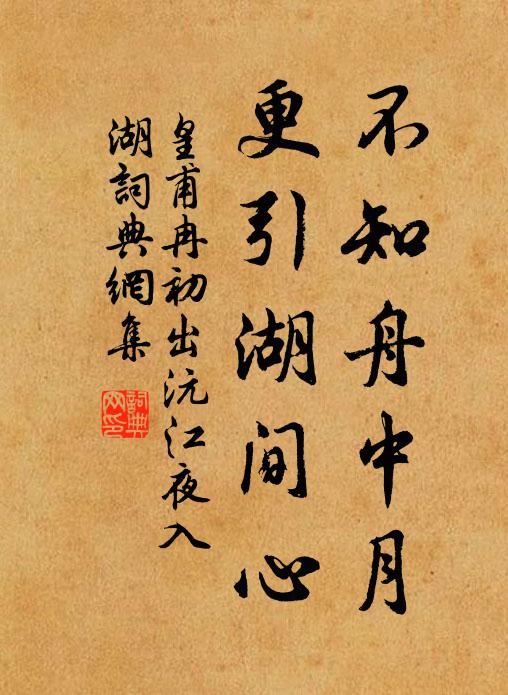 不知舟中月
更引湖间心
皇甫冉初出沅江夜入
湖詞典網集
詞典
网印